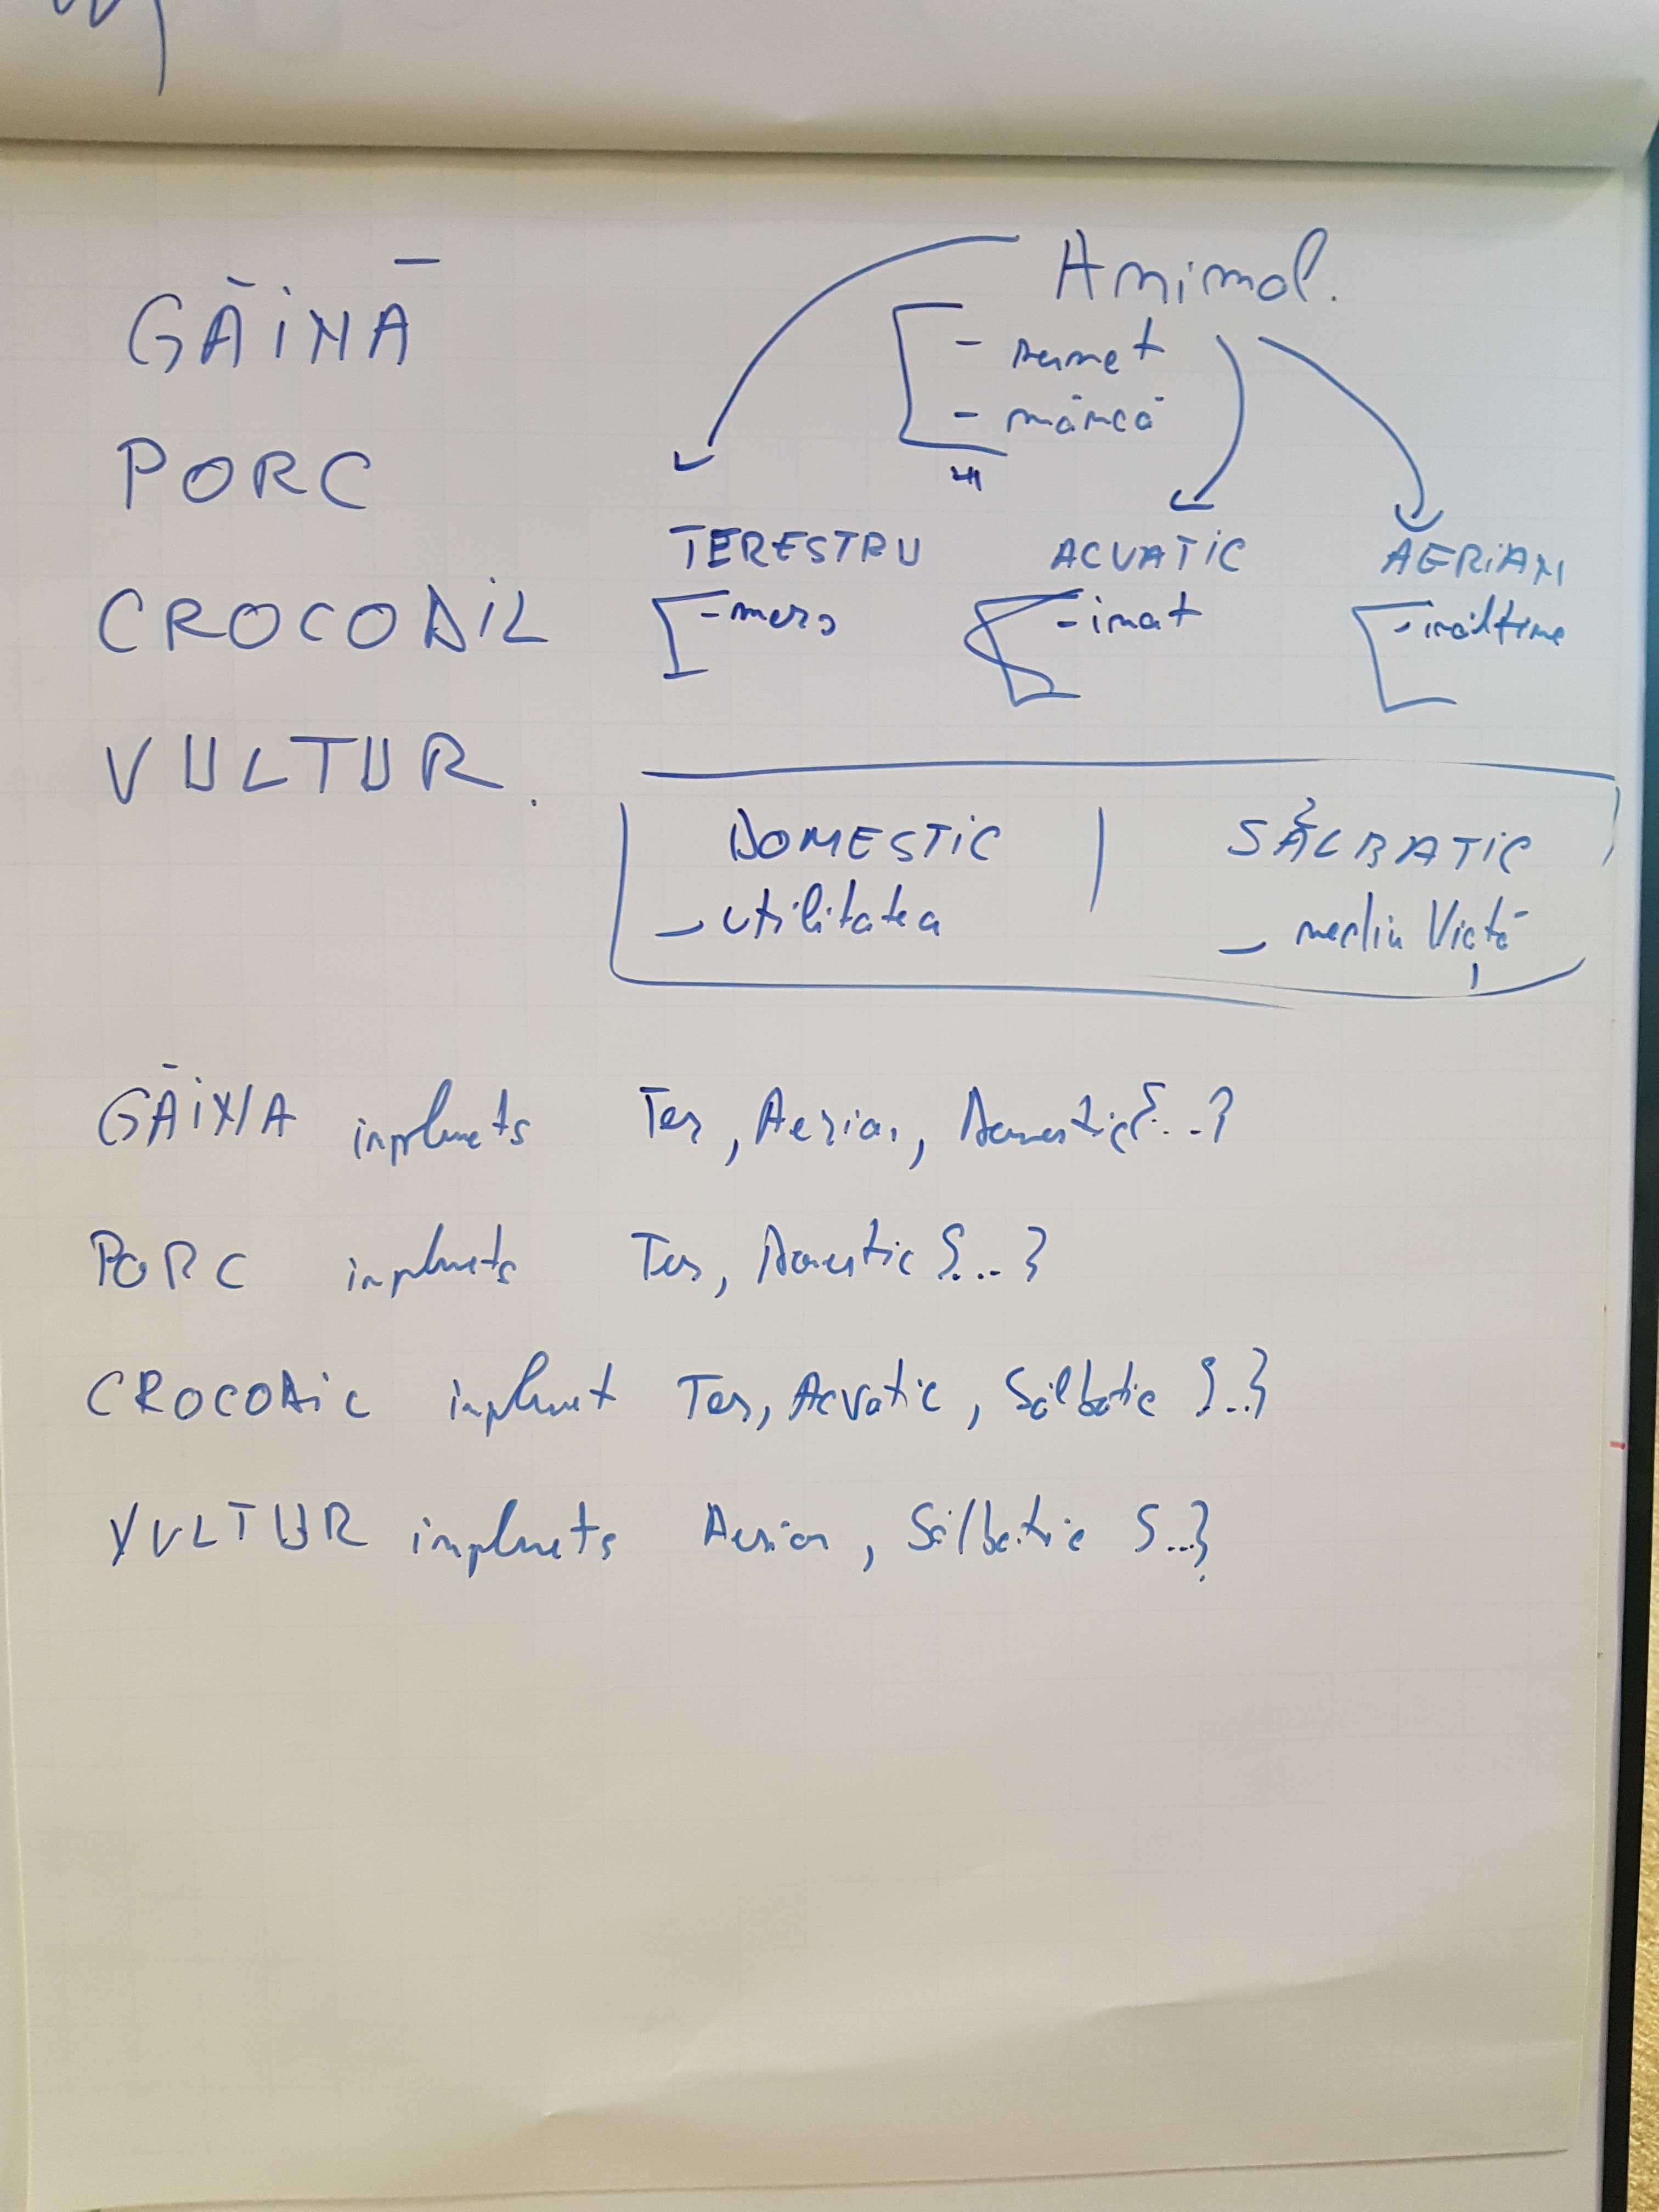 GĂINĂ
PORC
CROCODIL
VULTUR.
Animal.
- sunet
- mâncă
TERESTRU
- mers
ACVATIC
- inat
AERIAN
- inăltime
DOMESTIC
- utilitatea
SĂLBATIC
- mediu Viață
GĂINA implnets Ter, Aerian, Domestic {...}
PORC implnets Ter, Domestic {...}
CROCODIL implnet Ter, Acvatic, Sălbatic {..}
VULTUR implnets Aerian, Sălbatic {...}